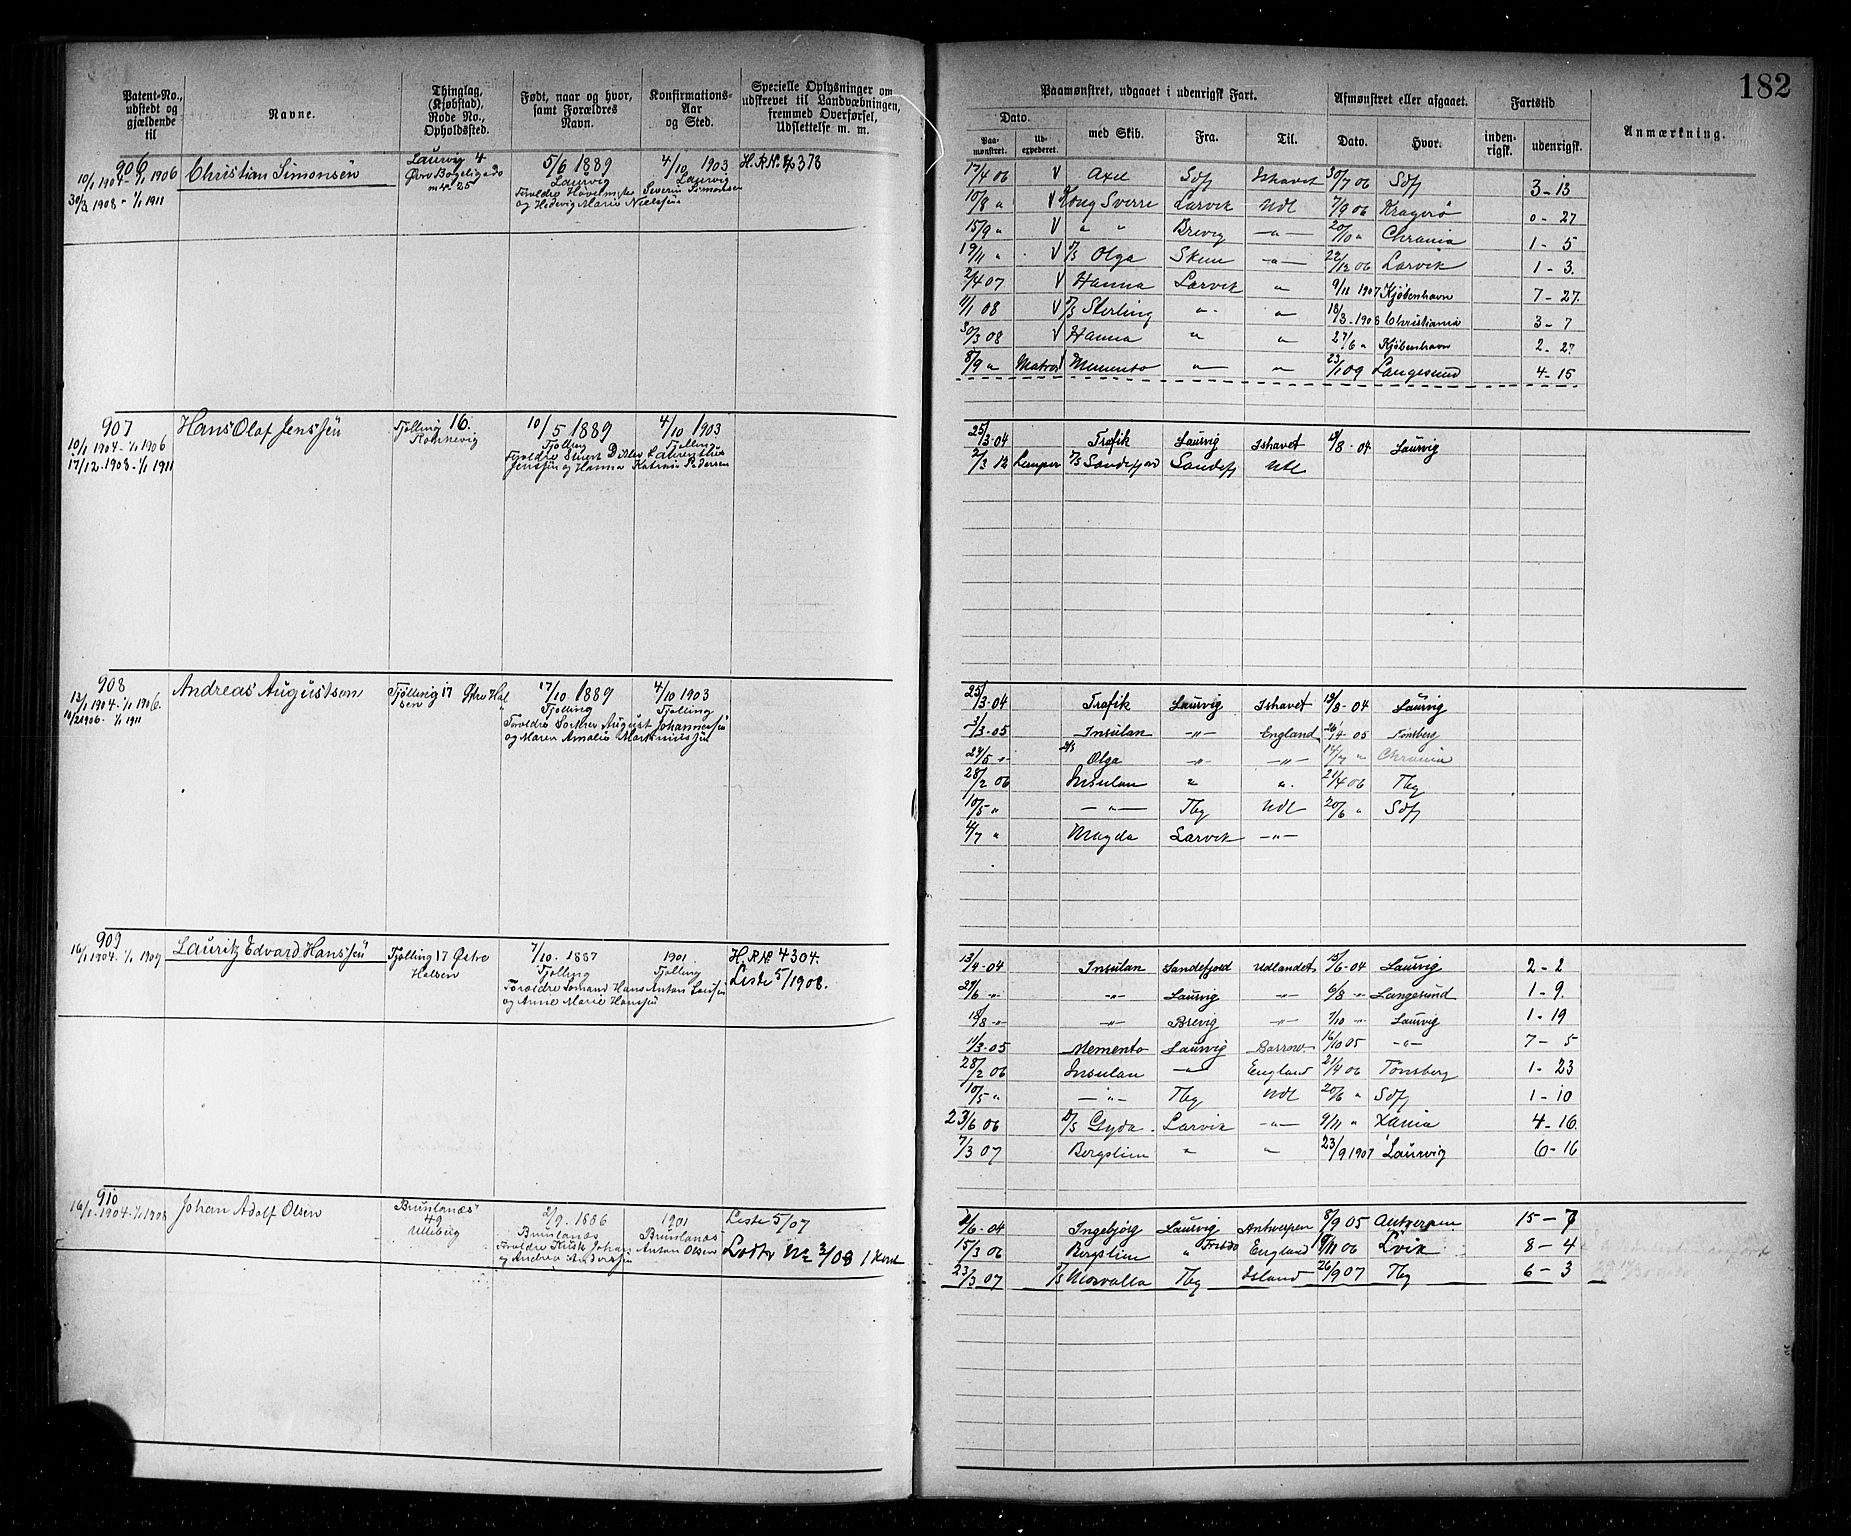 182
Patent-No., udstedt og gjældende til
Navne.
Thinglag, (Kjøbstad), Rode No., Opholdssted.
Født, naar og hvor, samt Forældres Navn.
Konfirmations-Aar og Sted.
Specielle Oplysninger om udskrevet til Landvæbningen, fremmed Overførsel, Udslettelse m. m.
Paamønstret, udgaaet i udenrigsk Fart.
Dato.
Paamønstret.
Udexpederet.
med Skib.
Fra.
Til.
Afmønstret eller afgaaet.
Dato.
Hvor.
Fartstid
indenrigsk.
udenrigsk.
Anmærkning.
906
10/1 1904 - 1/1 1906
30/3 1908 - 1/1 1911
Christian Simonsen
Laurvig 4
5/6 1889
Laurvig
4/10 1903
Laurvig
og Hedvig Marie Nielsen
Severin Simonsen
17/4 06 V Axel Sdfj Ishavet 30/7 06 Sdfj 3-13
10/8 " V Kong Sverre Larvik Udl 7/9 06 Kragerø 0-27
15/9 " V " " Brevig -"- 20/10 " Chrania 1-5
19/11 " V D/S Olga Skien -"- 22/12 06 Larvik 1-3
2/4 07 V Hanna Larvik " 9/11 1907 Kjøbenhavn 7-27
11/1 08 V D/S Sterling " " 18/3 1908 Christiania 3-7
30/3 08 V Hanna " " 27/6 " Kjøbenhavn 2-27
8/9 " Matros Memento " " 23/1 09 Langesund 4-15
907
10/1 1904 - 1/1 1906
17/12 1908 - 1/1 1911
Hans Olaf Jenssen
Tjølling 16.
10/5 1889
Tjølling
4/10 1903
Tjølling
Jenssen og Hanna Katrine Pedersen
25/3-04 Trafik Laurvig Ishavet /8-04 Laurvig
2/3 12 Lemper D/S Sandefjord Sandefj Udl
908
12/1 1904 - 1/1 1906.
1906 - 1/1 1911
Andreas Augustsen
Tjølling 17 Østre Halsen
17/10 1889
Tjølling
4/10 1903
Tjølling
August Johannesen
og Maren Amalie Markmussen
25/3-04 Trafik Laurvig Ishavet 19/8-04 Laurvig
3/3-05 Insulan -"- England 26/4-05 Tønsberg
27/5 " D/S Olga -"- -"- 14/7 " Chrania
28/2 06 Insulan " " 21/4 06 Tbg
10/5 " -"- Tbg Udl 20/6 " Sdfj
4/7 " Magda Larvik -"-
909
16/1 1904 - 1/1 1909
Lauritz Edvard Hanssen
Tjølling 17 Østre Halsen
7/10. 1887
Tjølling
1901.
Tjølling
Forældre Sømand Hans Anton Larsen
og Anne Marie Hansen
H. R. No 4304.
Liste 5/1908.
13/4-04 Insulan Sandefjord Udlandet 15/6-04 Laurvig 2-2
27/6 -"- -"- Laurvig -"- 6/8 -"- Langesund 1-9.
18/8 -"- -"- Brevig -"- 7/10 -"- Laurvig 1-19
11/3-05 Memento Laurvig Barrow. 16/10 05 -"- 7-5
28/2 06 Insulan -"- England 21/4 06 Tønsberg 1-23
10/5 " -"- Tbg Udl 20/6 " Sdfj 1-10
23/6 06 D/S Gyda Larvik -"- 9/11 " Xania 4-16
7/3 07 Bergslien " " 23/9 1907 Laurvig 6-16
910
16/1-1904 - 1/1 1908
Johan Adolf Olsen
Brunlanæs
49
2/9. 1886
Brunlanæs
1901
Brunlanæs
Johan Anton Olsen
og Andrea Andersen
Liste 5/07
/6-04 Ingebjørg Laurvig Antwerpen 8/9 05 Antwerpen 15-7
15/3 06 Bergslien " England 06 Lvik 8-4
23/3 07 D/S Mosvalla Tbg Island 26/9 07 Tbg 6-3